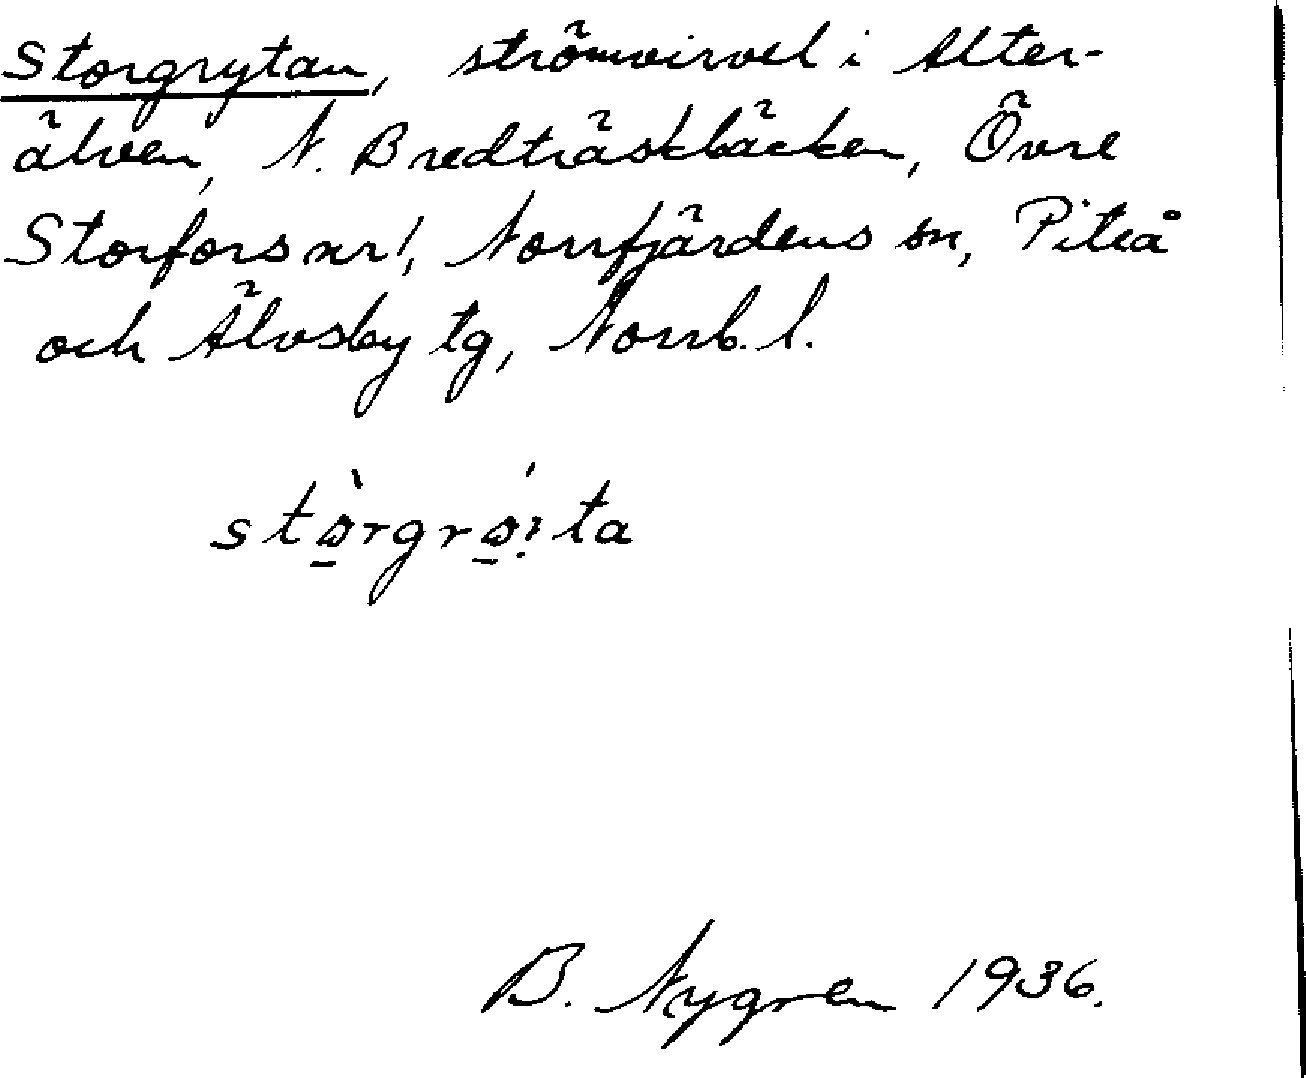 Storgrytan, strömvirvel i Alter-
älven, N. Bredträskbäcken, Övre
Storfors nr 1, Norrfjärdens sn, Piteå
och Älvsby tg, Norrb. l.
stø̀rgrǿ:ta
B. Nygren 1936.